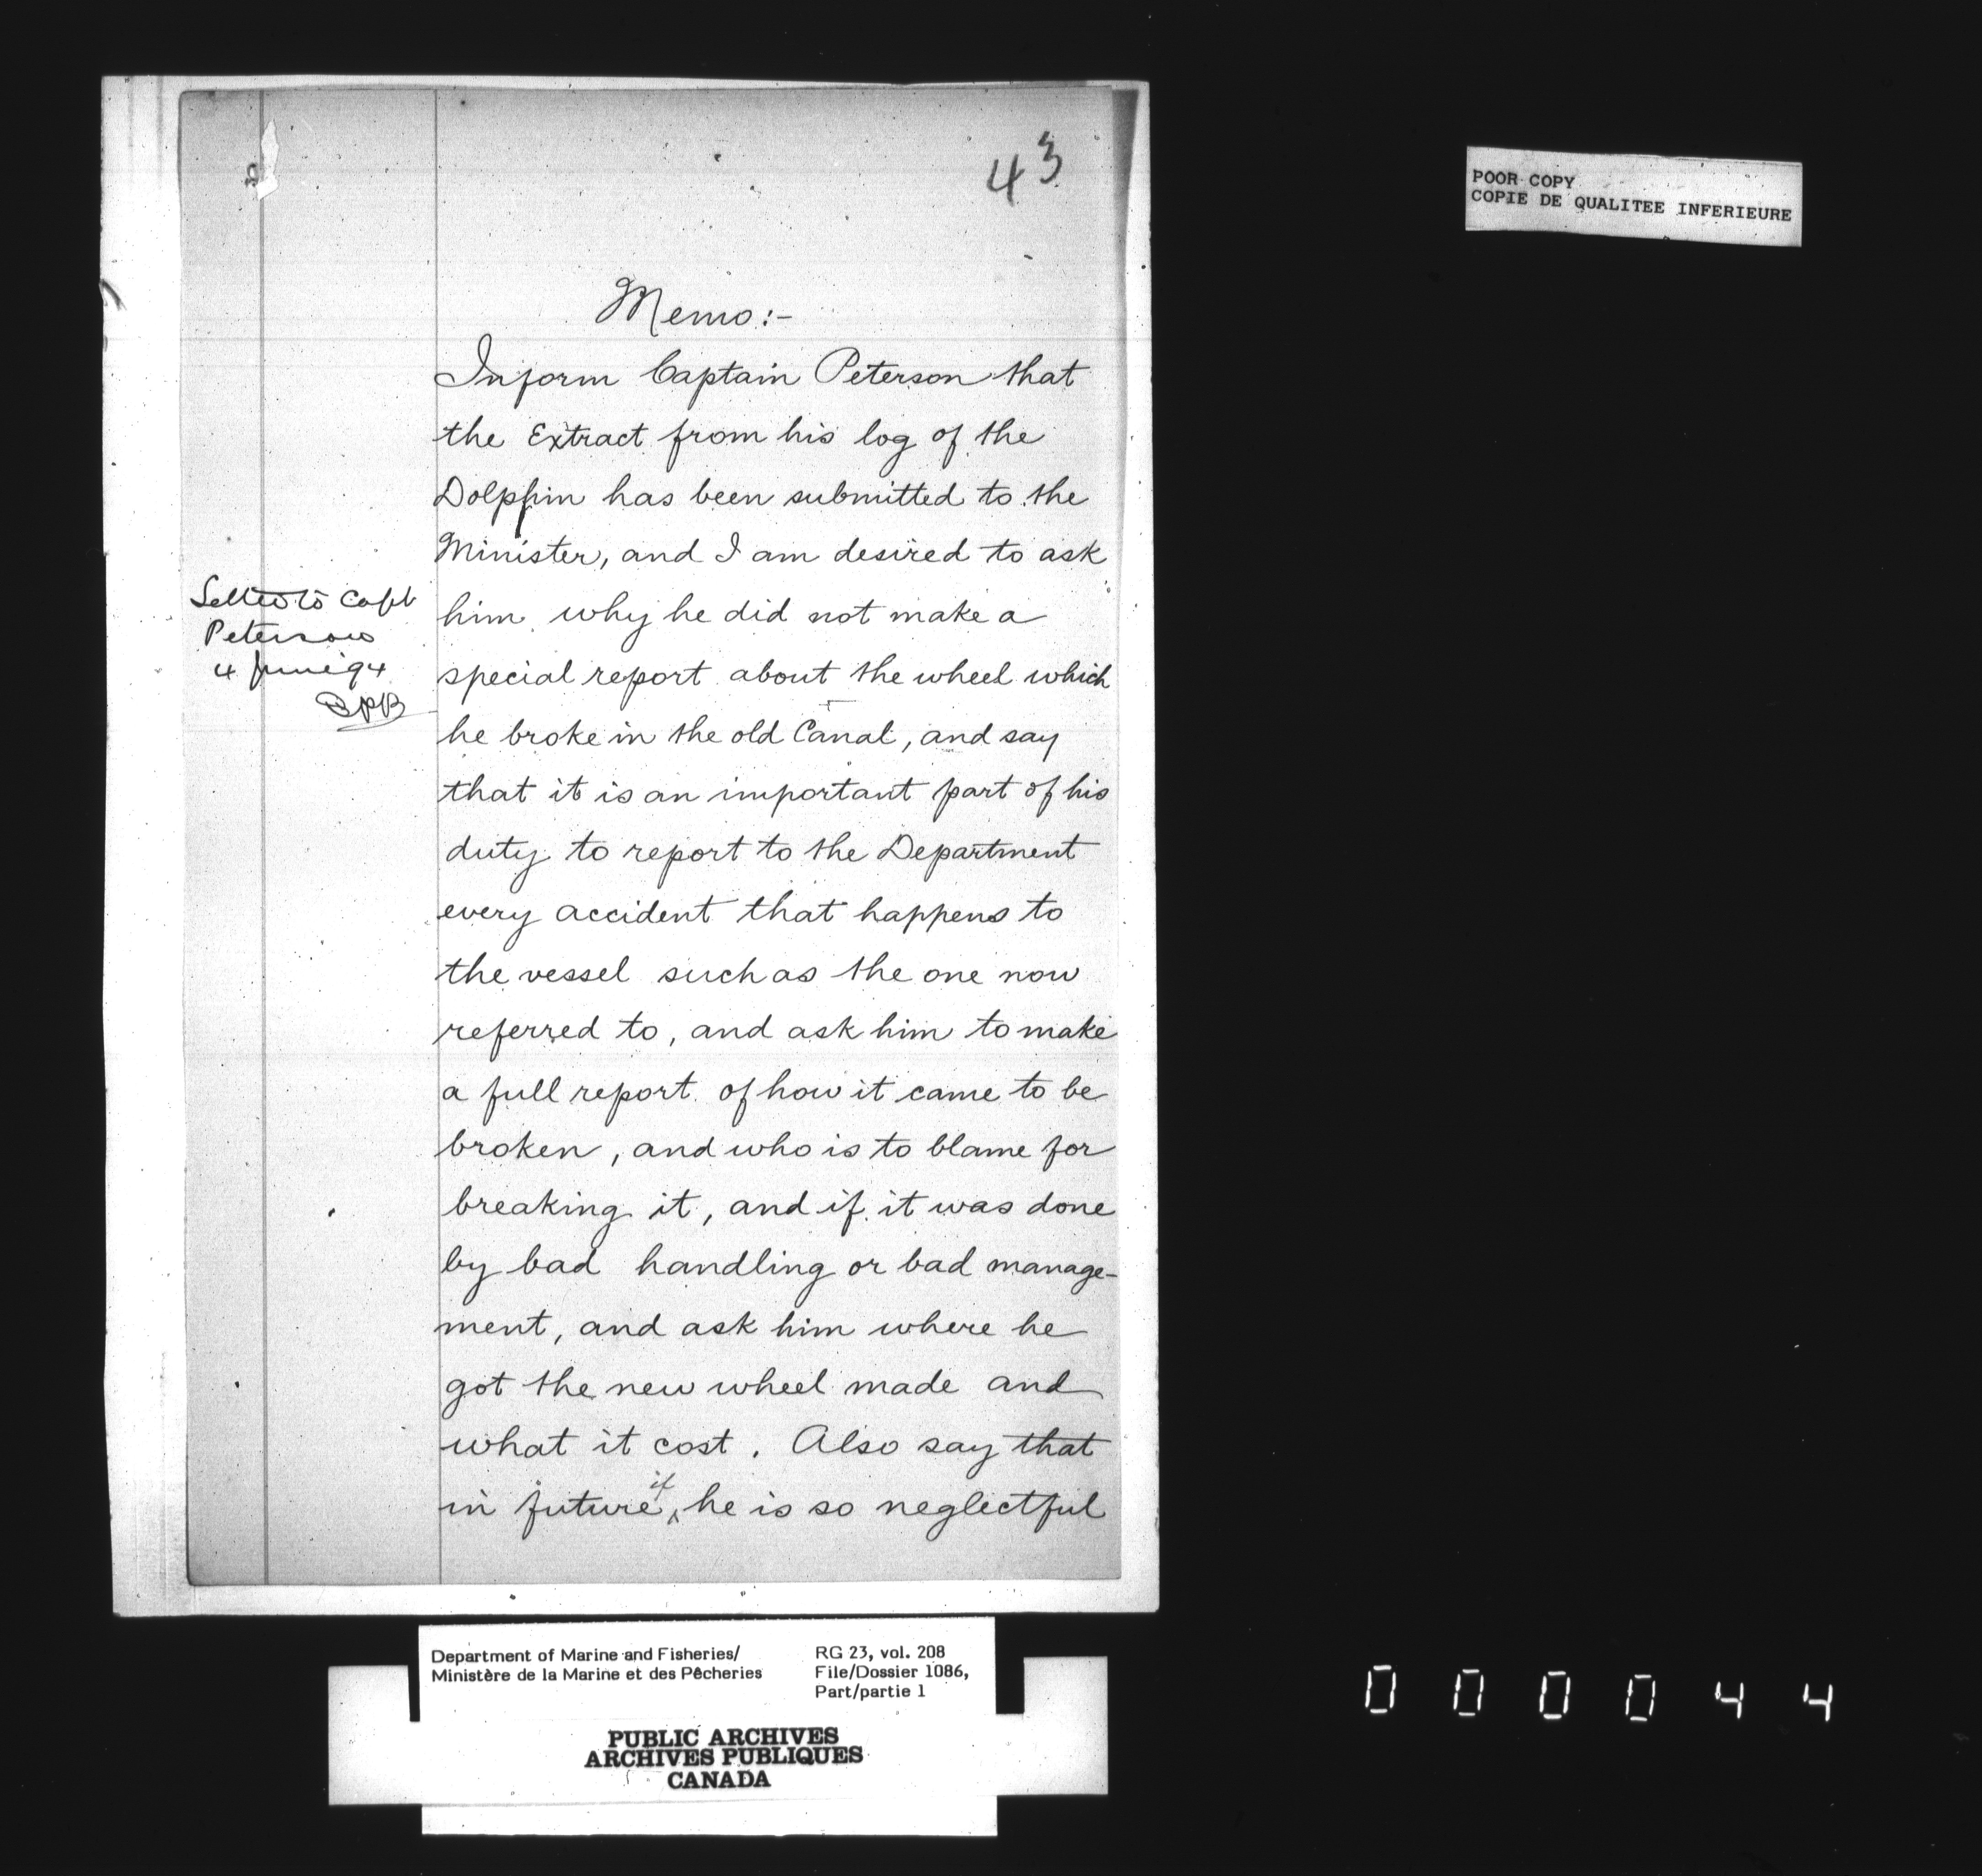 43
POOR COPY
COPIE DE QUALITEE INFERIEURE
Memo:-
Inform Captain Peterson that
the Extract from his log of the
Dolphin has been submitted to the
Minister, and I am desired to ask
him why he did not make a
special report about the wheel which
he broke in the old Canal, and say
that it is an important part of his
duty to report to the Department
every accident that happens to
the vessel such as the one now
referred to, and ask him to make
a full report of how it came to be
broken, and who is to blame for
breaking it, and if it was done
by bad handling or bad manage-
ment, and ask him where he
got the new wheel made and
what it cost. Also say that
in future if he is so neglectful
Letter to Capt
Peterson
4 June 94
Department of Marine and Fisheries/
Ministère de la Marine et des Pêcheries
RG 23, vol. 208
File/Dossier 1086,
Part/partie 1
PUBLIC ARCHIVES
ARCHIVES PUBLIQUES
CANADA
000044